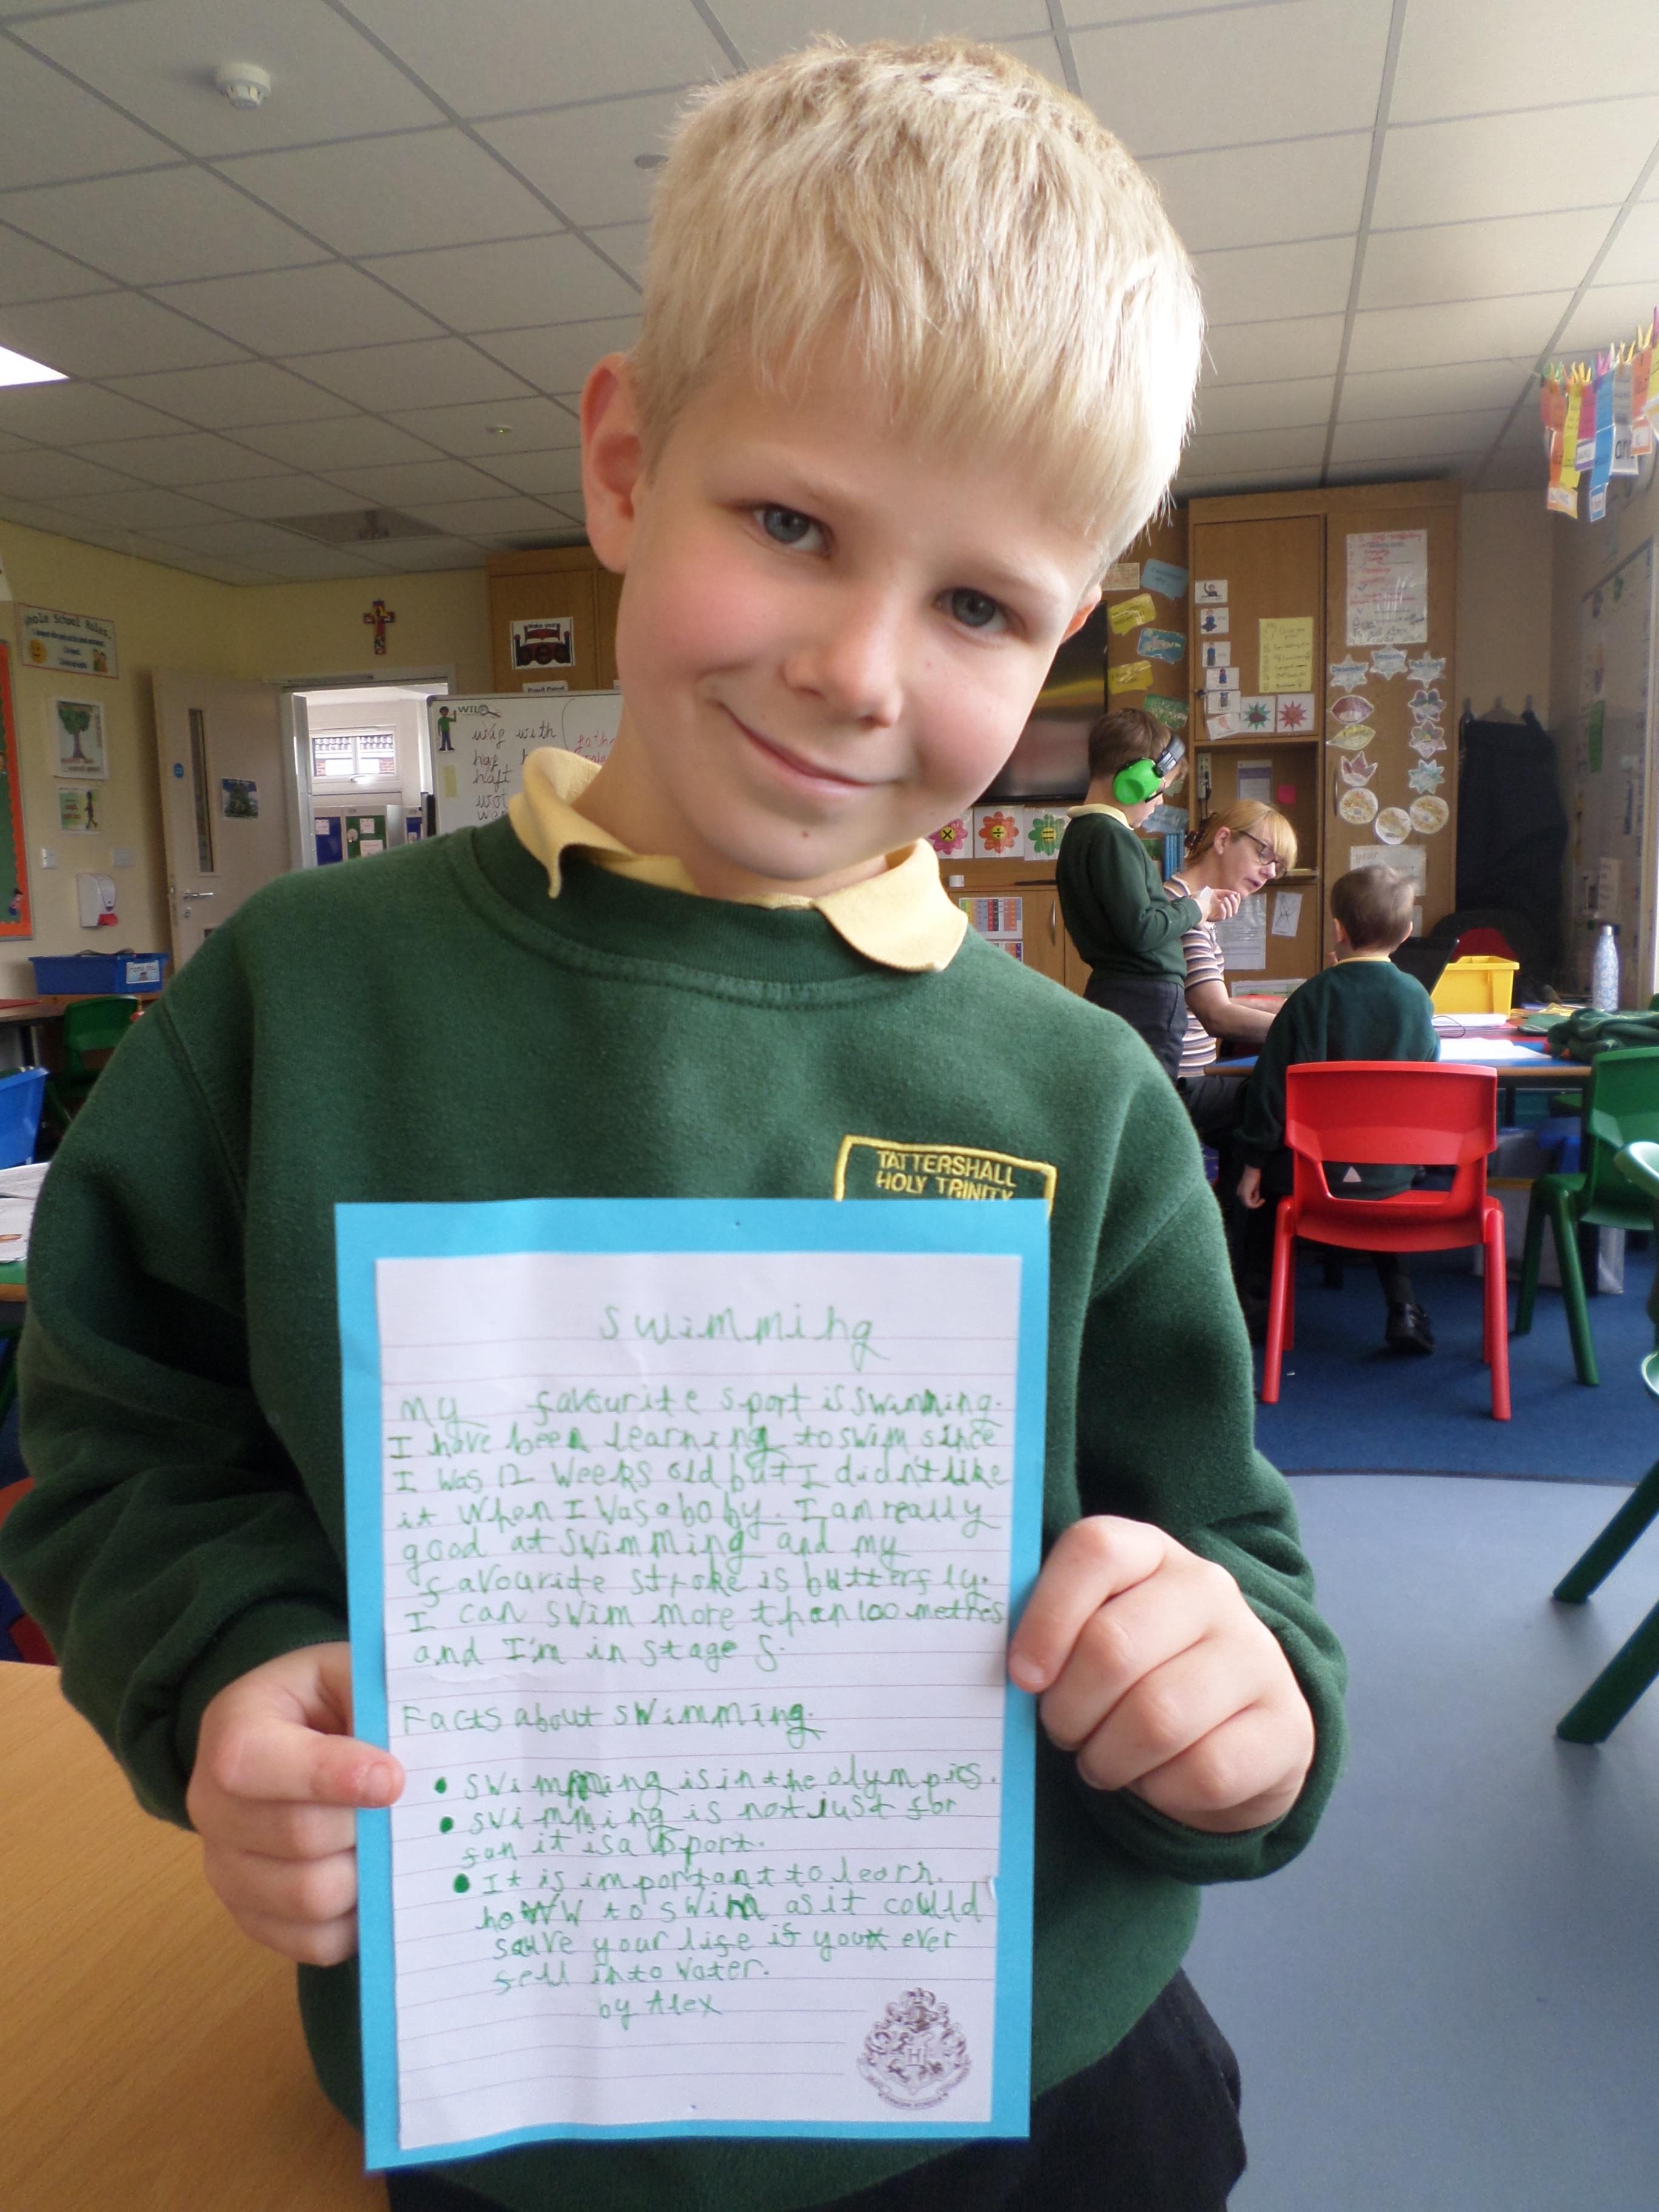 Whole School Rules
WILF
wag with
TATTERSHALL
HOLY TRINITY
Swimming
My favourite sport is swimming.
I have been learning to swim since
I was 12 weeks old but I didn't like
it when I was a baby. I am really
good at swimming and my
favourite stroke is butterfly.
I can swim more than 100 methes
and I'm in stage 5.
Facts about swimming.
• swimming is in the olympics.
• swimming is not just for
fun it is a sport.
• It is important to learn.
how to swim as it could
save your life if you ever
fell into water.
by Alex
H